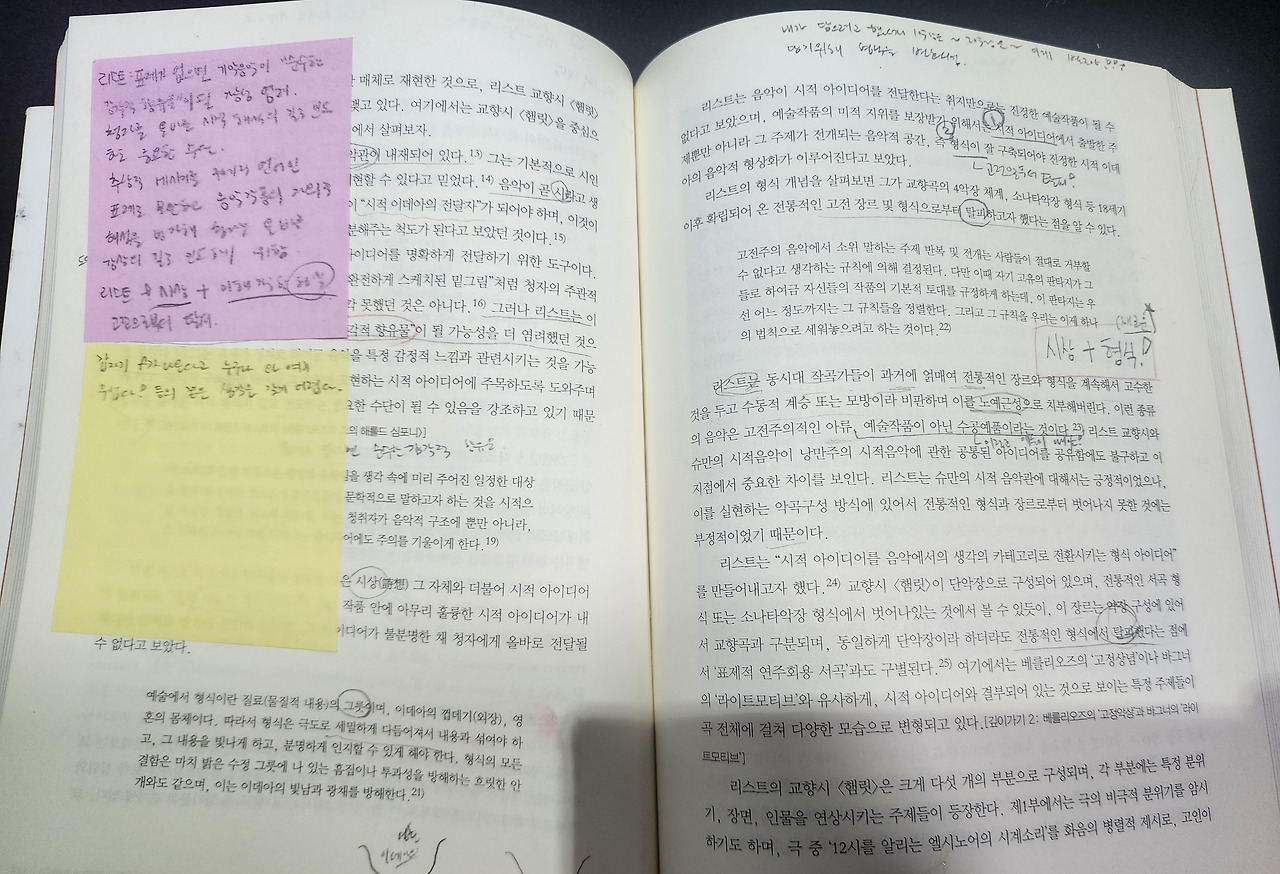 리스트: 표제가 없으면 기악음악이 "순수한
감각적 향유물"이 될 가능성 염려.
추상적
표제로 음악작품의
해석을 방지해
리스트 시상 + 형식
고전으로부터 탈피.
갑자기 f가 나온다고 누구나 다 여기
무섭다! 등의 같은 생각을 갖게 어렵다.
매체로 재현한 것으로, 리스트 교향시 〈햄릿〉
맺고 있다. 여기에서는 교향시 〈햄릿〉을 중심으
에서 살펴보자.
악관이 내재되어 있다.13) 그는 기본적으로 시인
현할 수 있다고 믿었다.14) 음악이 곧 시라고 생
이 "시적 이데아의 전달자"가 되어야 하며, 이것이
분해주는 척도가 된다고 보았던 것이다.15)
아이디어를 명확하게 전달하기 위한 도구이다.
완전하게 스케치된 밑그림"처럼 청자의 주관적
각 못했던 것은 아니다.16) 그러나 리스트는 이
각적 향유물"이 될 가능성을 더 염려했던 것으
을 특정 감정적 느낌과 관련시키는 것을 가능
현하는 시적 아이디어에 주목하도록 도와주며
요한 수단이 될 수 있음을 강조하고 있기 때문
의 해롤드 심포니〉]
면 순수 감각적 향유물
을 생각 속에 미리 주어진 일정한 대상
문학적으로 말하고자 하는 것을 시적으
청취자가 음악적 구조에 뿐만 아니라,
어에도 주의를 기울이게 한다.19)
은 시상(詩想) 그 자체와 더불어 시적 아이디어
작품 안에 아무리 훌륭한 시적 아이디어가 내
이디어가 불분명한 채 청자에게 올바로 전달될
수 없다고 보았다.
예술에서 형식이란 질료(물질적 내용)의 그릇이며, 이데아의 껍데기(외장), 영
혼의 몸체이다. 따라서 형식은 극도로 세밀하게 다듬어져서 내용과 섞여야 하
고, 그 내용을 빛나게 하고, 분명하게 인지할 수 있게 해야 한다. 형식의 모든
결함은 마치 밝은 수정 그릇에 나 있는 흠집이나 투과성을 방해하는 흐릿한 안
개와도 같으며, 이는 이데아의 빛남과 광채를 방해한다.21)
내가 담으려고
담기위해
리스트는 음악이 시적 아이디어를 전달한다는 취지만으로는 진정한 예술작품이 될 수
없다고 보았으며, 예술작품의 미적 지위를 보장받기 위해서는 시적 아이디어에서 출발한 주
제뿐만 아니라 그 주제가 전개되는 음악적 공간, 즉 형식이 잘 구축되어야 진정한 시적 이데
아의 음악적 형상화가 이루어진다고 보았다.
고전으로부터 탈피?
리스트의 형식 개념을 살펴보면 그가 교향곡의 4악장 체계, 소나타악장 형식 등 18세기
이후 확립되어 온 전통적인 고전 장르 및 형식으로부터 탈피하고자 했다는 점을 알 수 있다.
고전주의 음악에서 소위 말하는 주제 반복 및 전개는 사람들이 절대로 거부할
수 없다고 생각하는 규칙에 의해 결정된다. 다만 이때 자기 고유의 판타지가 그
들로 하여금 자신들의 작품의 기본적 토대를 규정하게 하는데, 이 판타지는 우
선 어느 정도까지는 그 규칙들을 정렬한다. 그리고 그 규칙을 우리는 이제 하나
의 법칙으로 세워놓으려고 하는 것이다.22)
(새로운)
시상 + 형식!
리스트는 동시대 작곡가들이 과거에 얽매여 전통적인 장르와 형식을 계속해서 고수한
것을 두고 수동적 계승 또는 모방이라 비판하며 이를 노예근성으로 치부해버린다. 이런 종류
의 음악은 고전주의적인 아류, 예술작품이 아닌 수공예품이라는 것이다.23) 리스트 교향시와
슈만의 시적음악이 낭만주의 시적음악에 관한 공통된 아이디어를 공유함에도 불구하고 이
지점에서 중요한 차이를 보인다. 리스트는 슈만의 시적 음악관에 대해서는 긍정적이었으나,
이를 실현하는 악곡구성 방식에 있어서 전통적인 형식과 장르로부터 벗어나지 못한 것에는
부정적이었기 때문이다.
리스트는 "시적 아이디어를 음악에서의 생각의 카테고리로 전환시키는 형식 아이디어"
를 만들어내고자 했다.24) 교향시 〈햄릿〉이 단악장으로 구성되어 있으며, 전통적인 서곡 형
식 또는 소나타악장 형식에서 벗어나있는 것에서 볼 수 있듯이, 이 장르는 악장 구성에 있어
서 교향곡과 구분되며, 동일하게 단악장이라 하더라도 전통적인 형식에서 탈피했다는 점에
서 '표제적 연주회용 서곡'과도 구별된다.25) 여기에서는 베를리오즈의 '고정상념'이나 바그너
의 '라이트모티브'와 유사하게, 시적 아이디어와 결부되어 있는 것으로 보이는 특정 주제들이
곡 전체에 걸쳐 다양한 모습으로 변형되고 있다.[깊이가기 2: 베를리오즈의 '고정악상'과 바그너의 '라이
트모티브']
리스트의 교향시 〈햄릿〉은 크게 다섯 개의 부분으로 구성되며, 각 부분에는 특정 분위
기, 장면, 인물을 연상시키는 주제들이 등장한다. 제1부에서는 극의 비극적 분위기를 암시
하기도 하며, 극 중 '12시를 알리는 엘시노어의 시계소리'를 화음의 병렬적 제시로, 고인이